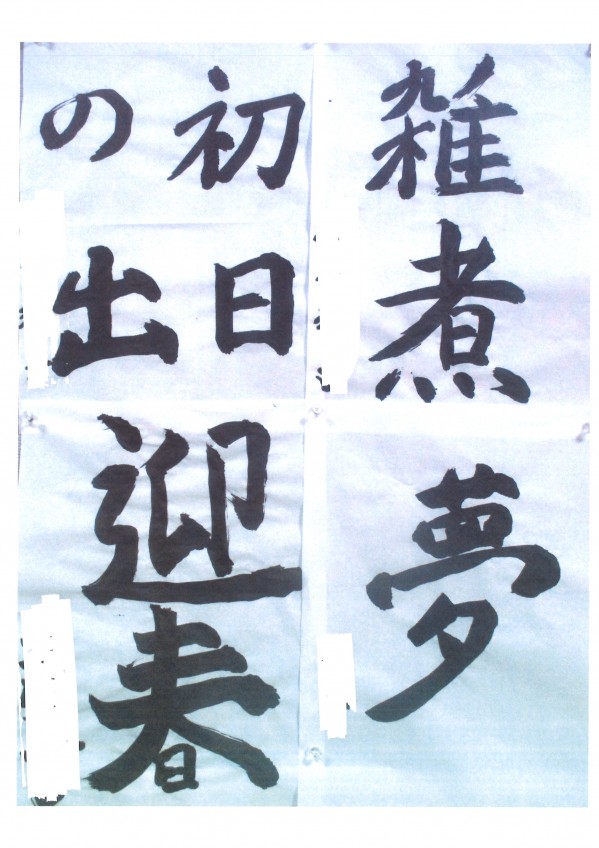 雑煮
初日
の出
夢
迎春